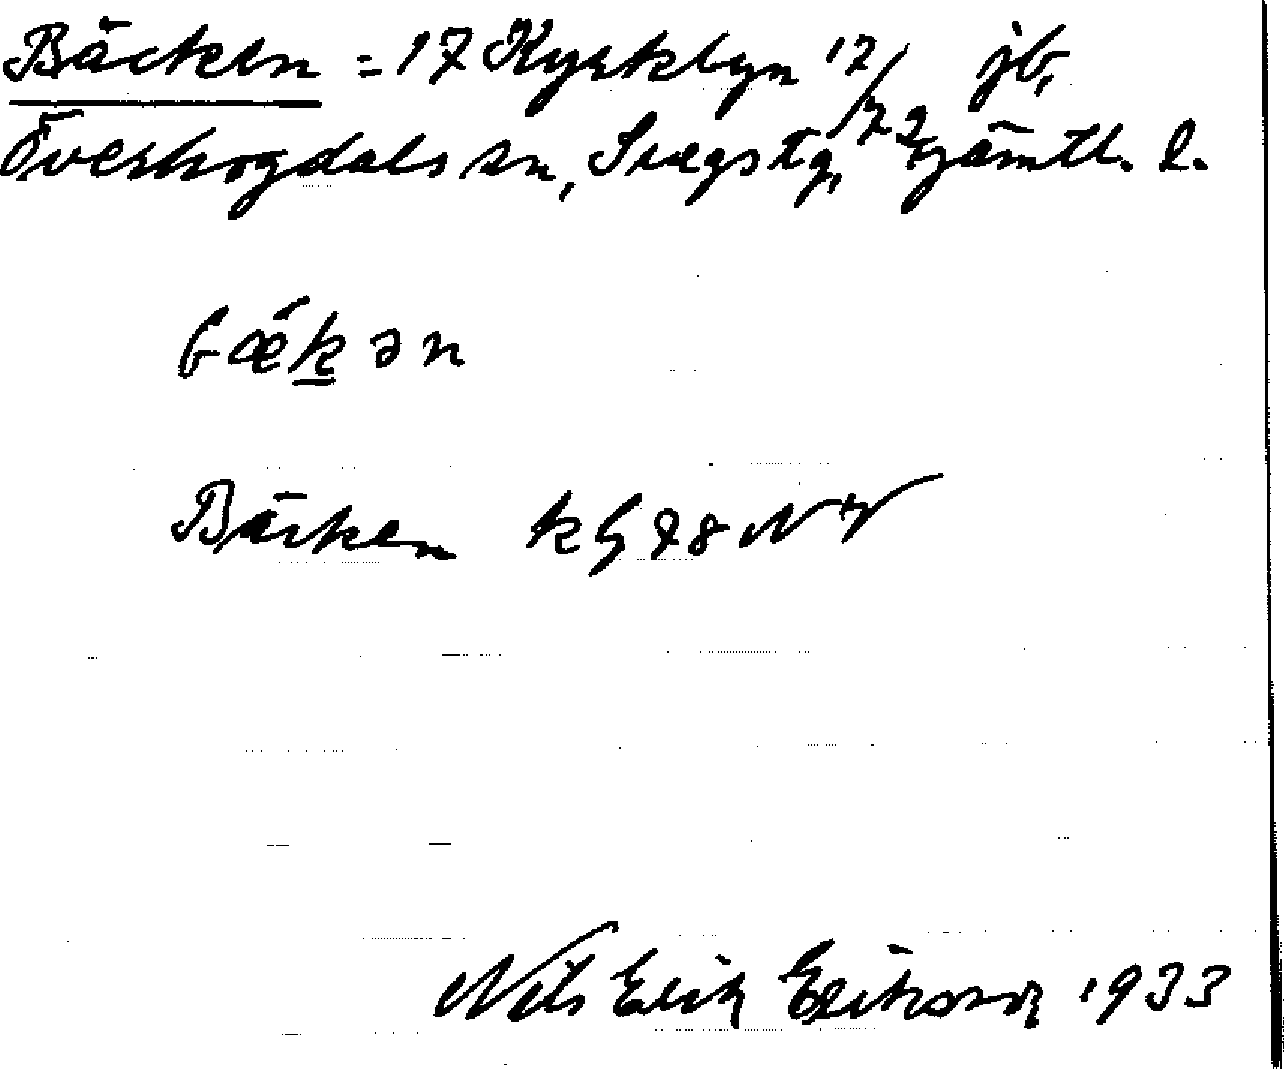 Bäcken = 17 Kyrkbyn 17/72 jb,
Överhogdals sn, Svegs tg, Jämtl. l.
bǽk̲ən
Bäcken kG 98 NV
Nils Erik Eriksson 1933